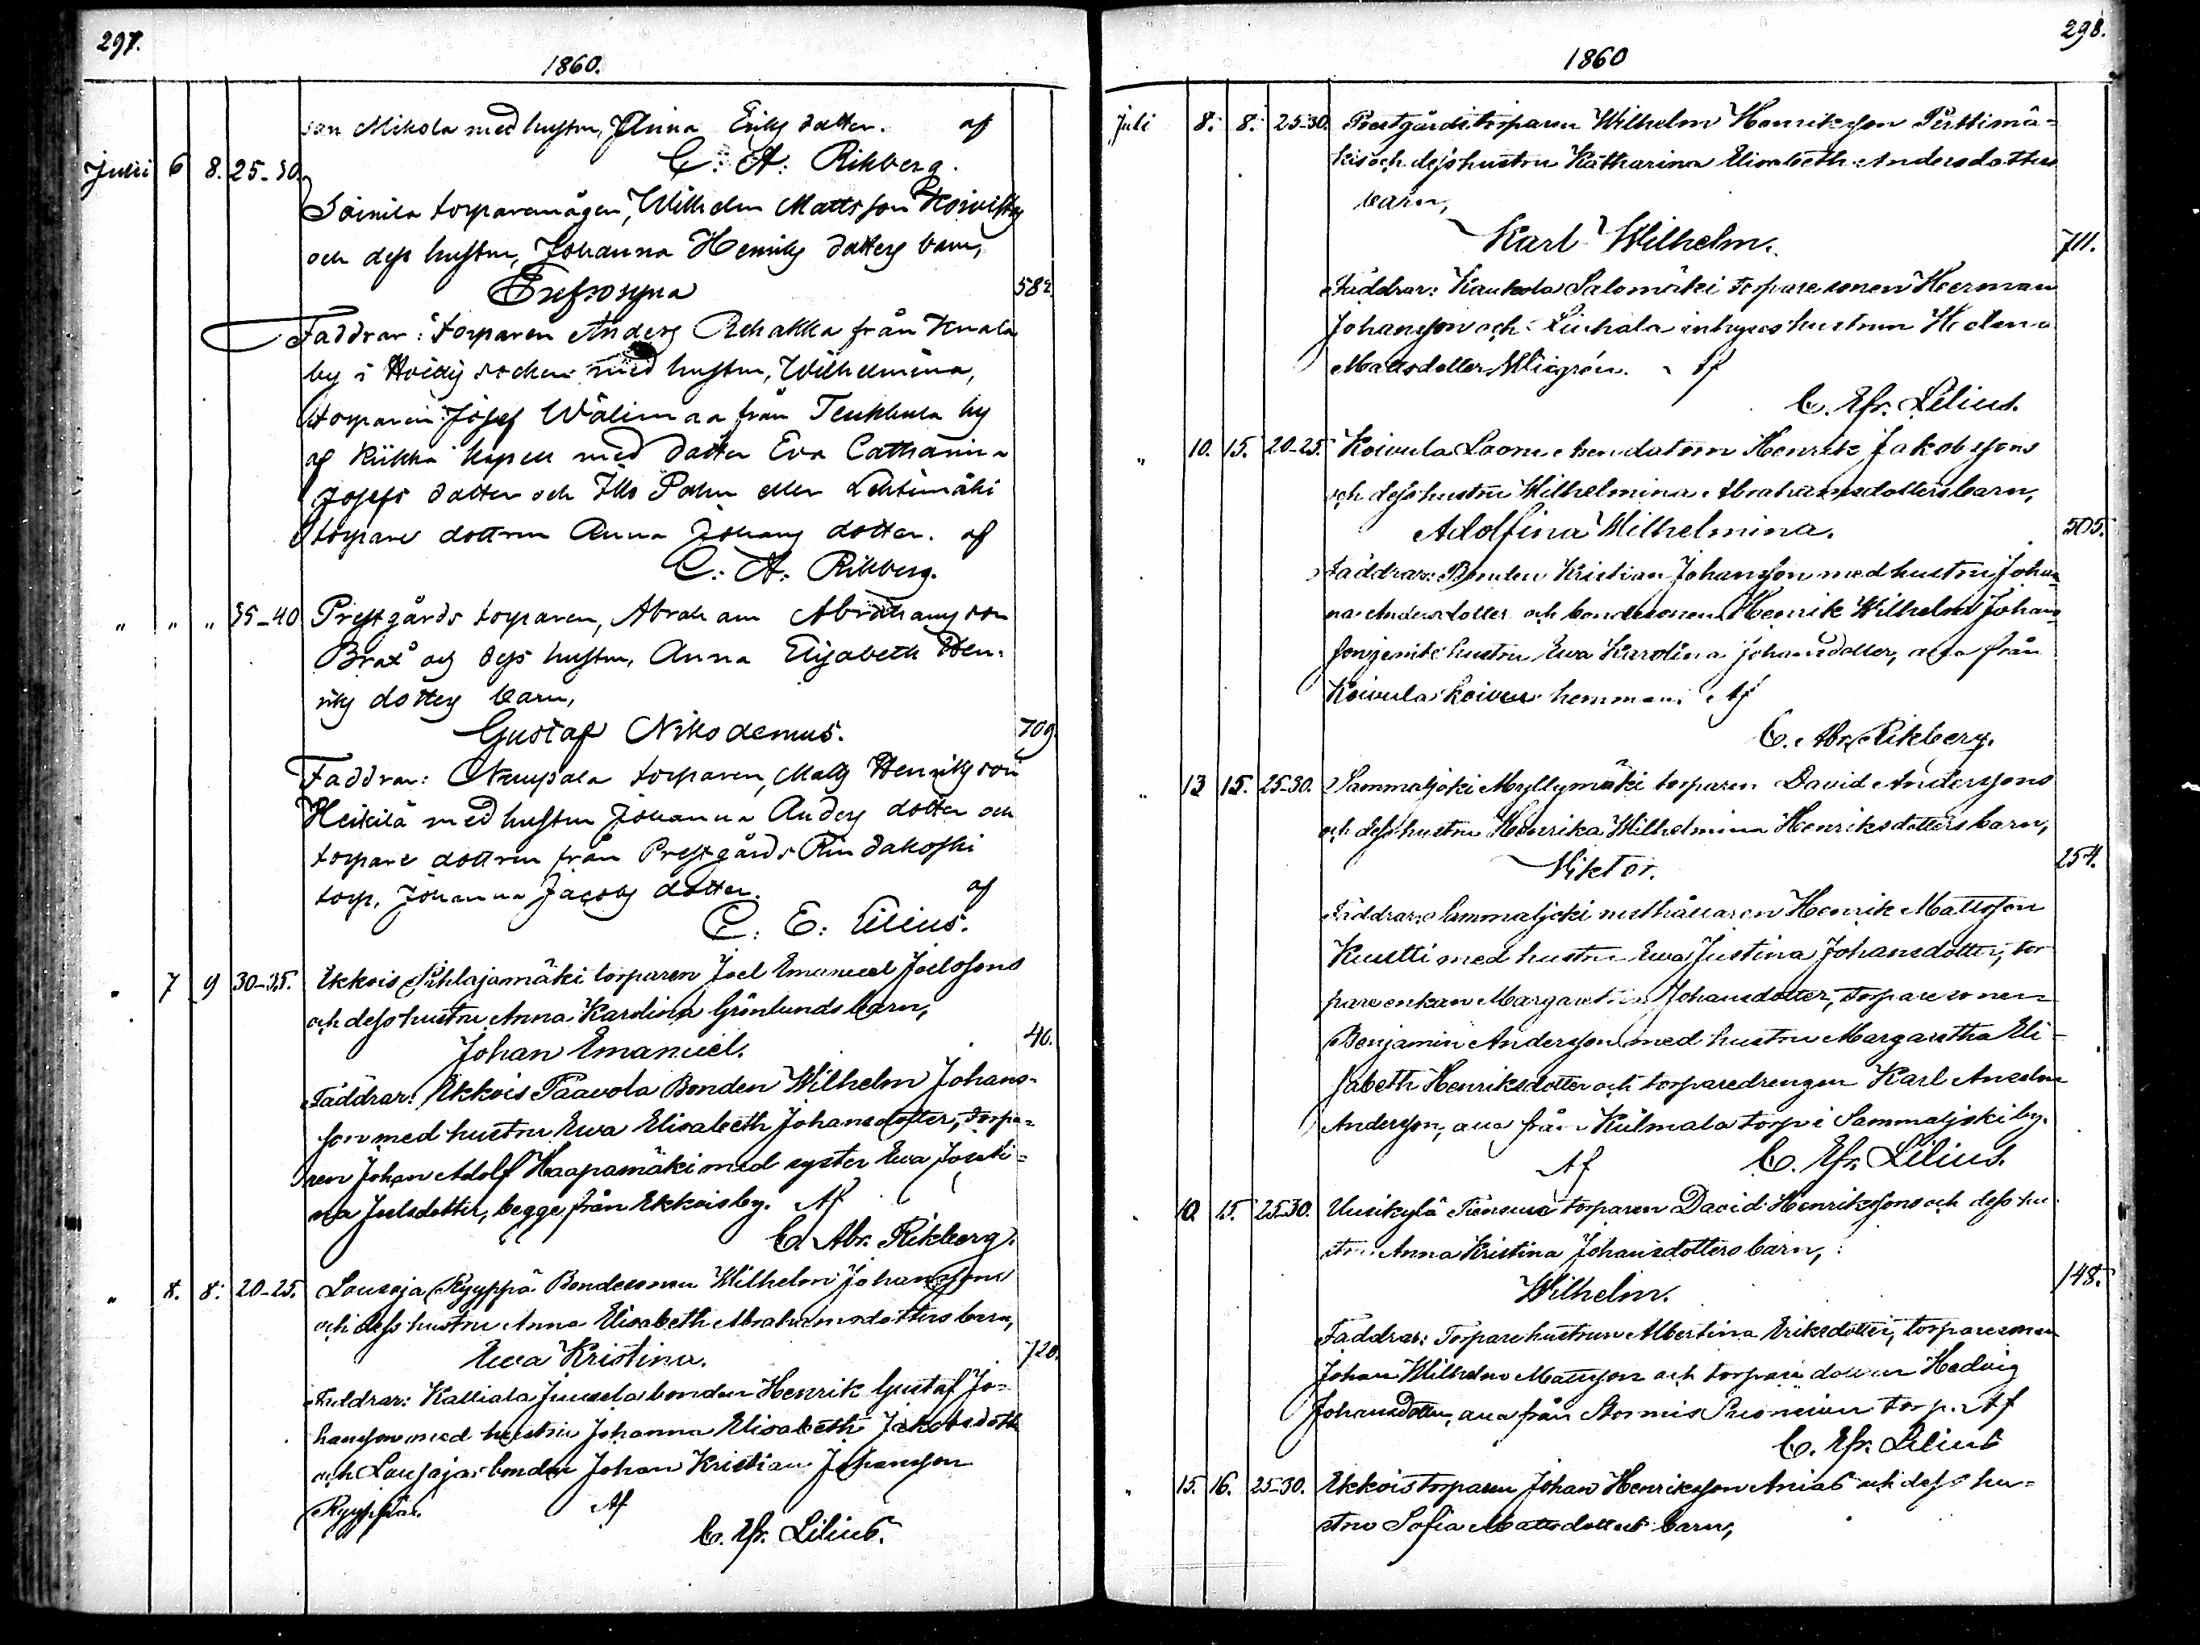 297.
1860.
son Mikola med hustru, Anna Eriks dotter. af
C: A: Rikberg.
Julii 6 8. 25-30.
Soinila torparemågen, Wilhelm Matts son Koivisto
och dess hustru, Johanna Henriks dotters barn,
Eufrosyna 582
Faddrar: torparen Anders Rehakka från
by i socken med hustru, Wilhelmina,
torparen Josef Wälimaa från by
af Kiikka kapell med dotter Eva Catharina
Josefs dotter och Illo Palm eller Lehtimäki
torpare dottren Anna Johans dotter. af
C: A: Rikberg.
" " " 35-40 Prestgårds torparen, Abraham Abrahams son
Brax och dess hustru, Anna Elisabeth Hen-
riks dotters barn,
Gustaf Nikodemus. 709
Faddrar: Nuupala torparen, Matts Henriks son
Heikilä med hustru Johanna Anders dotter och
torpare dottren från Prestgårds Rindakoski
torp, Johanna Jacobs dotter. af
C: E: Lilius.
" 7 9 30-35. Ekkois Pihlajamäki torparen Joel Emanuel Joelssons
och dess hustru Anna Karolina Grönlunds barn,
Johan Emanuel. 40.
Faddrar: Ekkois Paavola Bonden Wilhelm Johans-
son med hustru Ewa Elisabeth Johansdotter, torpa-
ren Johan Adolf Haapamäki med syster Ewa Justi-
na Joelsdotter, begge från Ekkois by. Af
C. Abr. Rikberg.
" 8. 8. 20-25. Lousaja Ryyppö Bondesonen Wilhelm Johanssons
och dess hustru Anna Elisabeth Abrahamsdotters barn,
Ewa Kristina. 720.
Faddrar: Kalliala Juusela bonden Henrik Gustaf Jo-
hansson med hustru Johanna Elisabeth Jakobsdottr
och Lousaja bonden Johan Kristian Johansson
Ryyppö. Af
C. Efr. Lilius.
298.
1860
Juli 8. 8. 25-30. Prestgårdstorparen Wilhelm Henriksson Perttimä-
kis och dess hustru Katharina Elisabeth Andersdotters
barn,
Karl Wilhelm. 711.
Faddrar: Kaukola Salomäki torparesonen Herman
Johansson och Liuhala inhyses hustrun Helena
Mattsdotter. Af
C. Efr. Lilius.
" 10. 15. 20-25. Koivula Henrik Jakobssons
och dess hustru Wilhelmina Abrahamsdotters barn,
Adolfina Wilhelmina. 505.
Faddrar: Bonden Kristian Johansson med hustru Johan-
na Andersdotter och bondesonen Henrik Wilhelm Johans-
son jemte hustru Ewa Karolina Johansdotter, alla från
Koivula hemman. Af
C. Abr. Rikberg.
" 13 15. 25-30. Sammaljoki Myllymäki torparen David Anderssons
och dess hustru Henrika Wilhelmina Henriksdotters barn,
Viktor. 254.
Faddrar: Sammaljoki rusthållaren Henrik Mattsson
Kuutti med hustru Ewa Justina Johansdotter, tor-
pareenkan Margaretha Johansdotter, torparesonen
Benjamin Andersson med hustru Margaretha Eli-
sabeth Henriksdotter och torparedrengen Karl Anselm
Andersson, alla från Külmala torp i Sammaljoki by.
Af C. Efr. Lilius.
" 10. 15. 25-30. Uusikylä torparen David Henrikssons och dess hu-
stru Anna Kristina Johansdotters barn,
Wilhelm. 148.
Faddrar: Torparehustrun Albertina Eriksdotter, torparesonen
Johan Wilhelm Mattsson och torpare dottren Hedvig
Johansdotter, alla från Stormis torp. Af
C. Efr. Lilius
" 15. 16. 25-30. Ekkois torparen Johan Henriksson Anias och dess hu-
stru Sofia Mattsdotters barn,